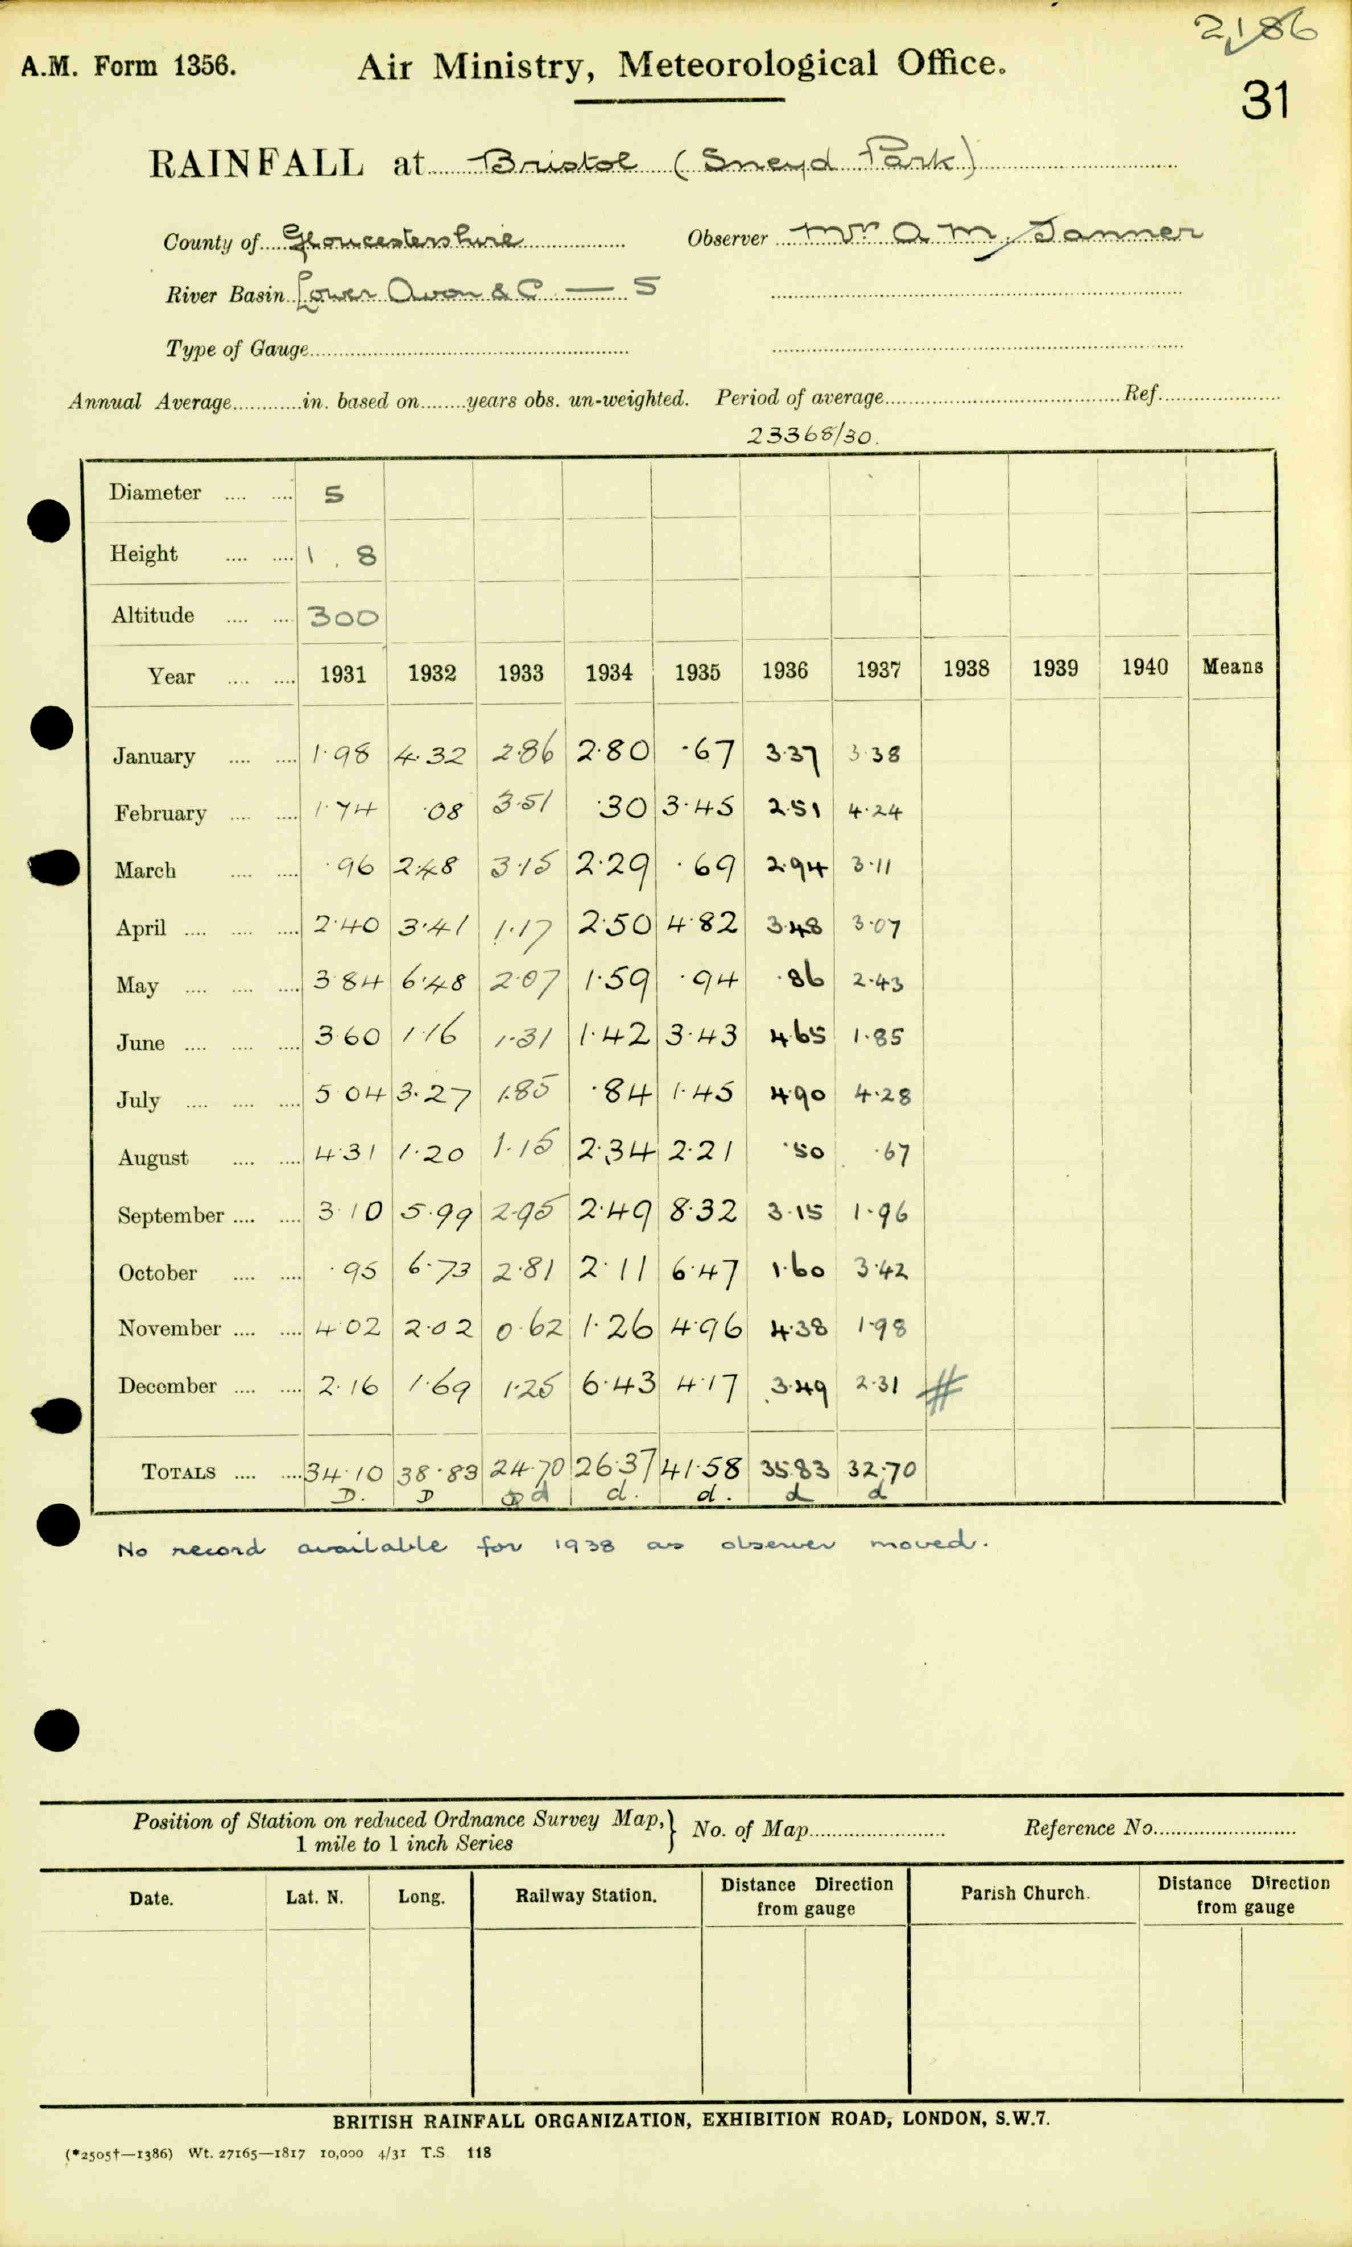 2186
A.M. Form 1356. Air Ministry, Meteorological Office.
31
RAINFALL at Bristol (Sneyd Park)
County of Gloucestershire Observer Mr A M. Tanner
River Basin Lower Avon & C — 5
Type of Gauge
Annual Average in. based on years obs. un-weighted. Period of average Ref.
23368/30.
Diameter 5
Height 1 . 8
Altitude 300
Year 1931 1932 1933 1934 1935 1936 1937 1938 1939 1940 Means
January 1.98 4.32 2.86 2.80 .67 3.37 3.38
February 1.74 .08 3.51 .30 3.45 2.51 4.24
March .96 2.48 3.15 2.29 .69 2.94 3.11
April 2.40 3.41 1.17 2.50 4.82 3.48 3.07
May 3.84 6.48 2.07 1.59 .94 .86 2.43
June 3.60 1.16 1.31 1.42 3.43 4.65 1.85
July 5.04 3.27 1.85 .84 1.45 4.90 4.28
August 4.31 1.20 1.15 2.34 2.21 .50 .67
September 3.10 5.99 2.95 2.49 8.32 3.15 1.96
October .95 6.73 2.81 2.11 6.47 1.60 3.42
November 4.02 2.02 0.62 1.26 4.96 4.38 1.98
December 2.16 1.69 1.25 6.43 4.17 3.49 2.31 #
TOTALS 34.10 38.83 24.70 26.37 41.58 35.83 32.70
D. D d d. d. d d
No record available for 1938 as observer moved.
Position of Station on reduced Ordnance Survey Map, } No. of Map Reference No.
1 mile to 1 inch Series
Date. Lat. N. Long. Railway Station. Distance Direction from gauge Parish Church. Distance Direction from gauge
BRITISH RAINFALL ORGANIZATION, EXHIBITION ROAD, LONDON, S.W.7.
(*2505†—1386) Wt. 27165—1817 10,000 4/31 T.S. 118